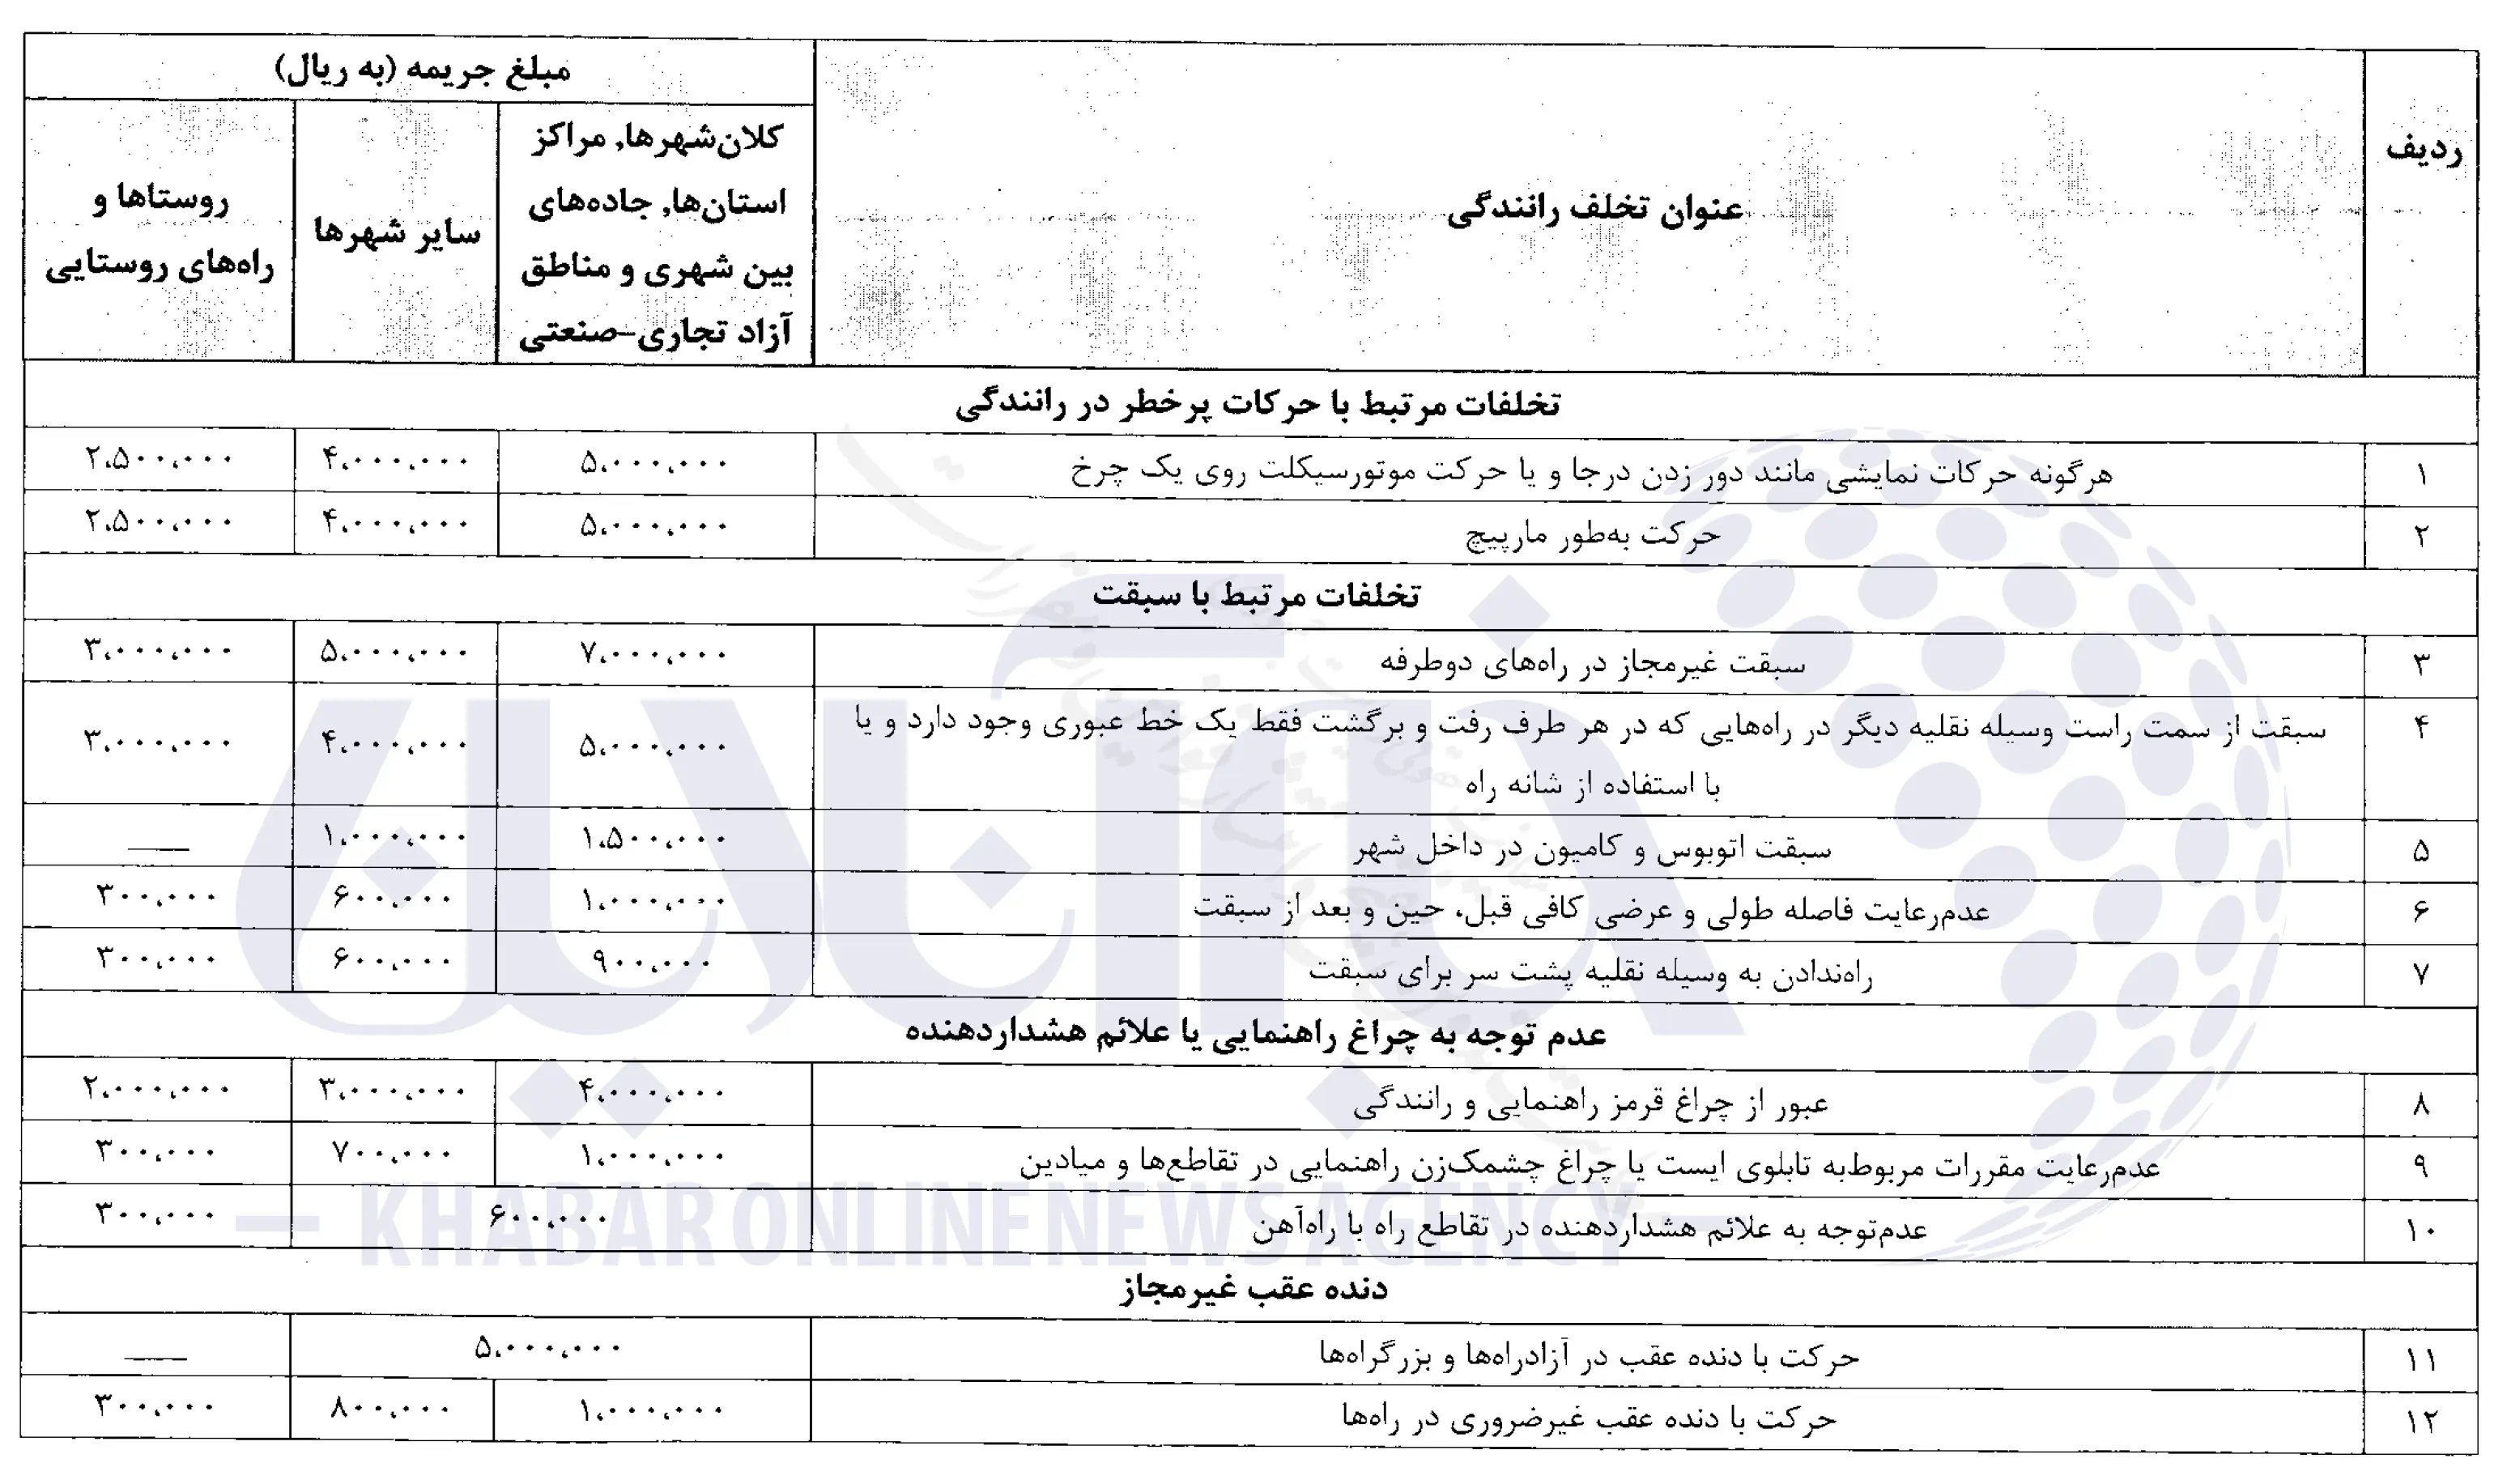 ردیف
عنوان تخلف رانندگی
مبلغ جریمه (به ریال)
کلان‌شهرها، مراکز
استان‌ها، جاده‌های
بین شهری و مناطق
آزاد تجاری-صنعتی
سایر شهرها
روستاها و
راه‌های روستایی
تخلفات مرتبط با حرکات پرخطر در رانندگی
۱ هرگونه حرکات نمایشی مانند دور زدن درجا و یا حرکت موتورسیکلت روی یک چرخ ۵،۰۰۰،۰۰۰ ۴،۰۰۰،۰۰۰ ۲،۵۰۰،۰۰۰
۲ حرکت به‌طور مارپیچ ۵،۰۰۰،۰۰۰ ۴،۰۰۰،۰۰۰ ۲،۵۰۰،۰۰۰
تخلفات مرتبط با سبقت
۳ سبقت غیرمجاز در راه‌های دوطرفه ۷،۰۰۰،۰۰۰ ۵،۰۰۰،۰۰۰ ۳،۰۰۰،۰۰۰
۴ سبقت از سمت راست وسیله نقلیه دیگر در راه‌هایی که در هر طرف رفت و برگشت فقط یک خط عبوری وجود دارد و یا
با استفاده از شانه راه ۵،۰۰۰،۰۰۰ ۴،۰۰۰،۰۰۰ ۳،۰۰۰،۰۰۰
۵ سبقت اتوبوس و کامیون در داخل شهر ۱،۵۰۰،۰۰۰ ۱،۰۰۰،۰۰۰ ___
۶ عدم‌رعایت فاصله طولی و عرضی کافی قبل، حین و بعد از سبقت ۱،۰۰۰،۰۰۰ ۶۰۰،۰۰۰ ۳۰۰،۰۰۰
۷ راه‌ندادن به وسیله نقلیه پشت سر برای سبقت ۹۰۰،۰۰۰ ۶۰۰،۰۰۰ ۳۰۰،۰۰۰
عدم توجه به چراغ راهنمایی یا علائم هشداردهنده
۸ عبور از چراغ قرمز راهنمایی و رانندگی ۴،۰۰۰،۰۰۰ ۳،۰۰۰،۰۰۰ ۲،۰۰۰،۰۰۰
۹ عدم‌رعایت مقررات مربوط‌به تابلوی ایست یا چراغ چشمک‌زن راهنمایی در تقاطع‌ها و میادین ۱،۰۰۰،۰۰۰ ۷۰۰،۰۰۰ ۳۰۰،۰۰۰
۱۰ عدم‌توجه به علائم هشداردهنده در تقاطع راه با راه‌آهن ۶۰۰،۰۰۰ ۳۰۰،۰۰۰
دنده عقب غیرمجاز
۱۱ حرکت با دنده عقب در آزادراه‌ها و بزرگراه‌ها ۵،۰۰۰،۰۰۰ ___
۱۲ حرکت با دنده عقب غیرضروری در راه‌ها ۱،۰۰۰،۰۰۰ ۸۰۰،۰۰۰ ۳۰۰،۰۰۰
خبرآنلاین
KHABARONLINE NEWS AGENCY